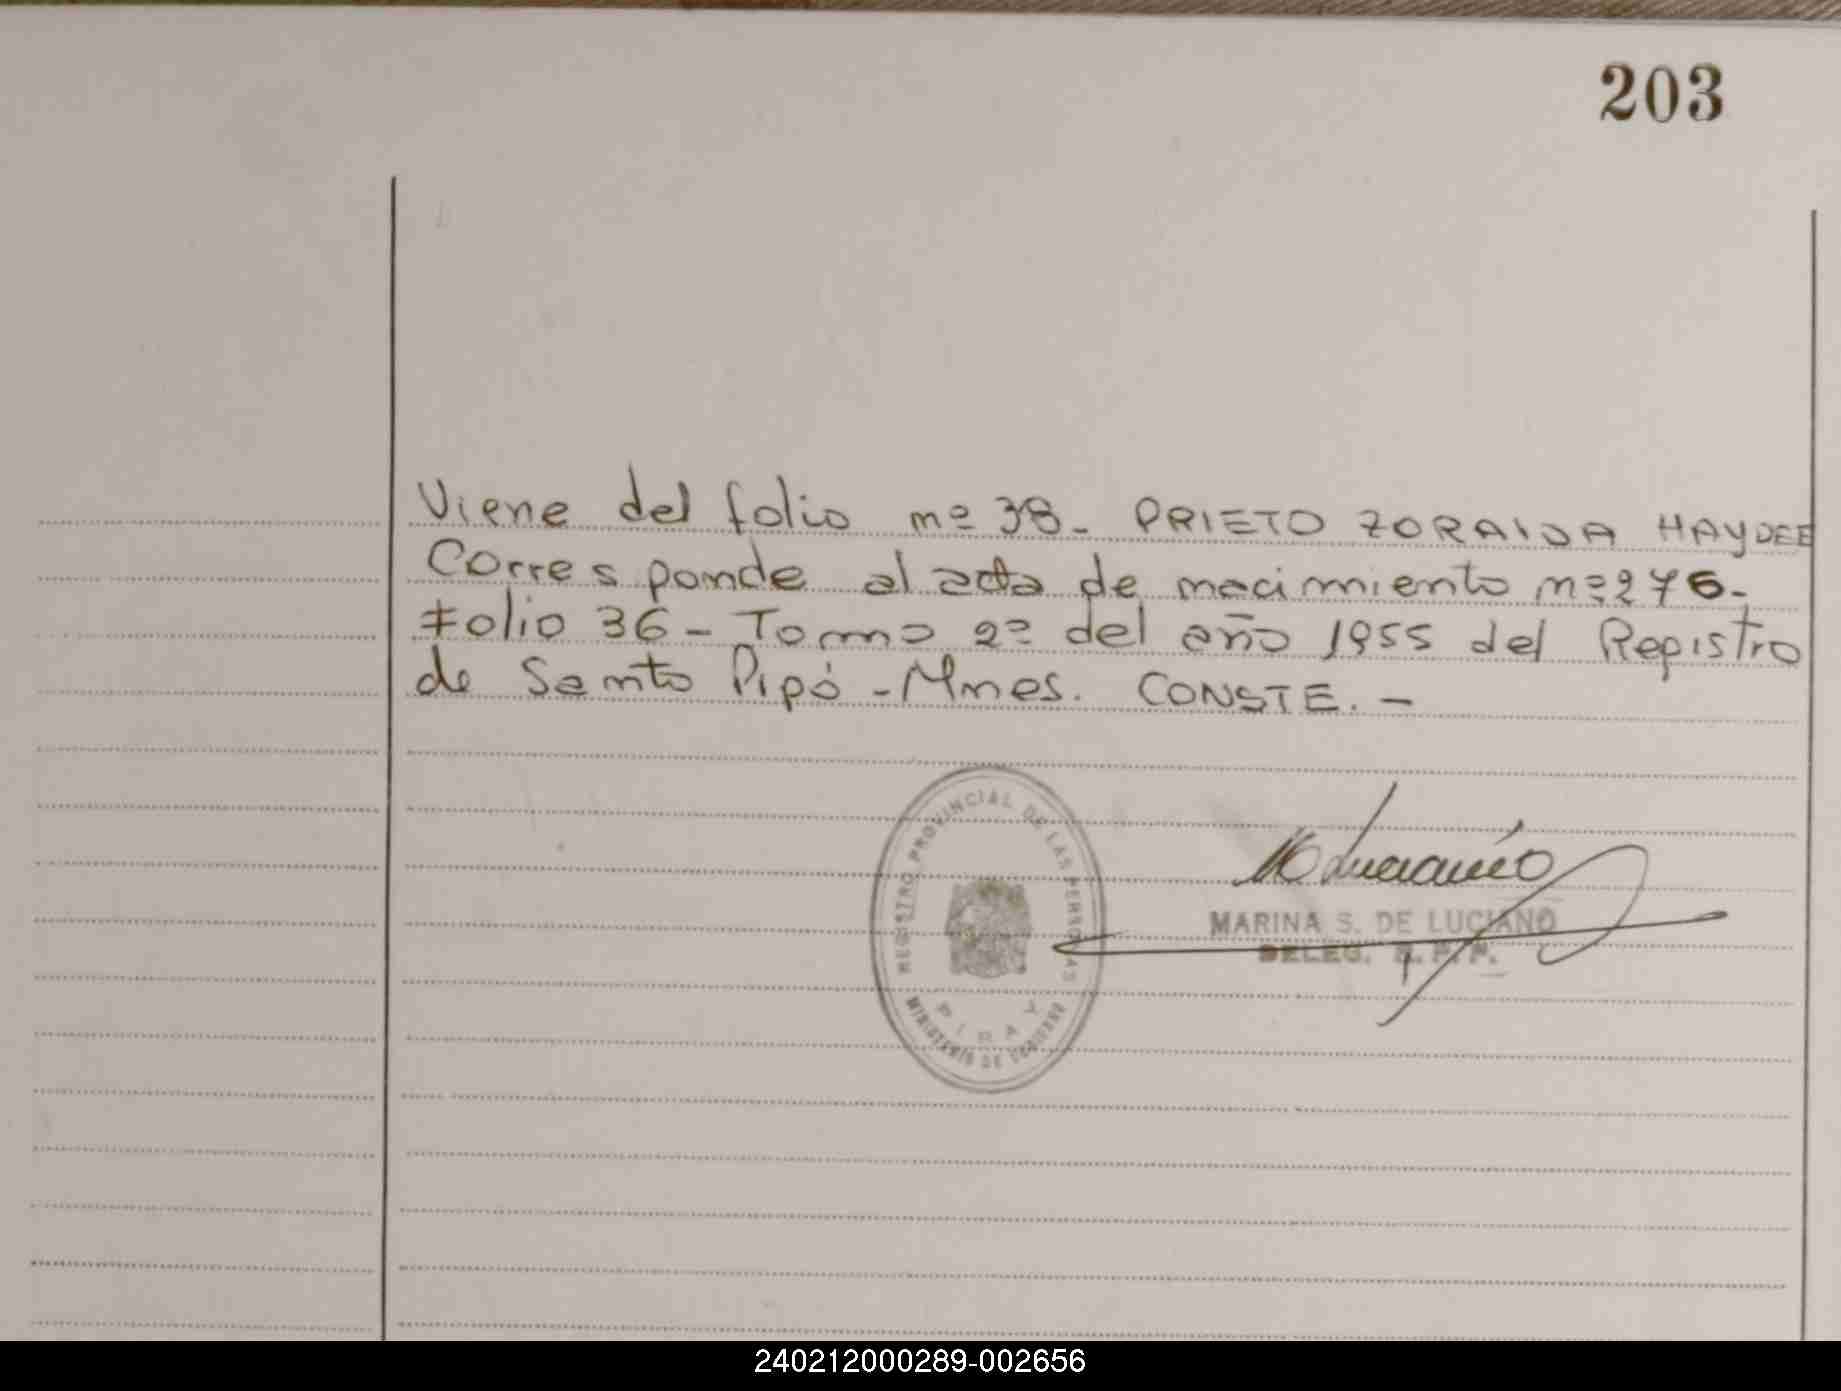 203
Viene del folio nº 38- PRIETO ZORAIDA HAYDEE
Corresponde al acta de nacimiento nº 276-
Folio 36- Tomo 2º del año 1955 del Registro
de Santo Pipó - Mnes. CONSTE. -
REGISTRO PROVINCIAL DE LAS PERSONAS
PIRAY
MINISTERIO DE GOBIERNO
MARINA S. DE LUCIANO
DELEG. R. P. P.
240212000289-002656